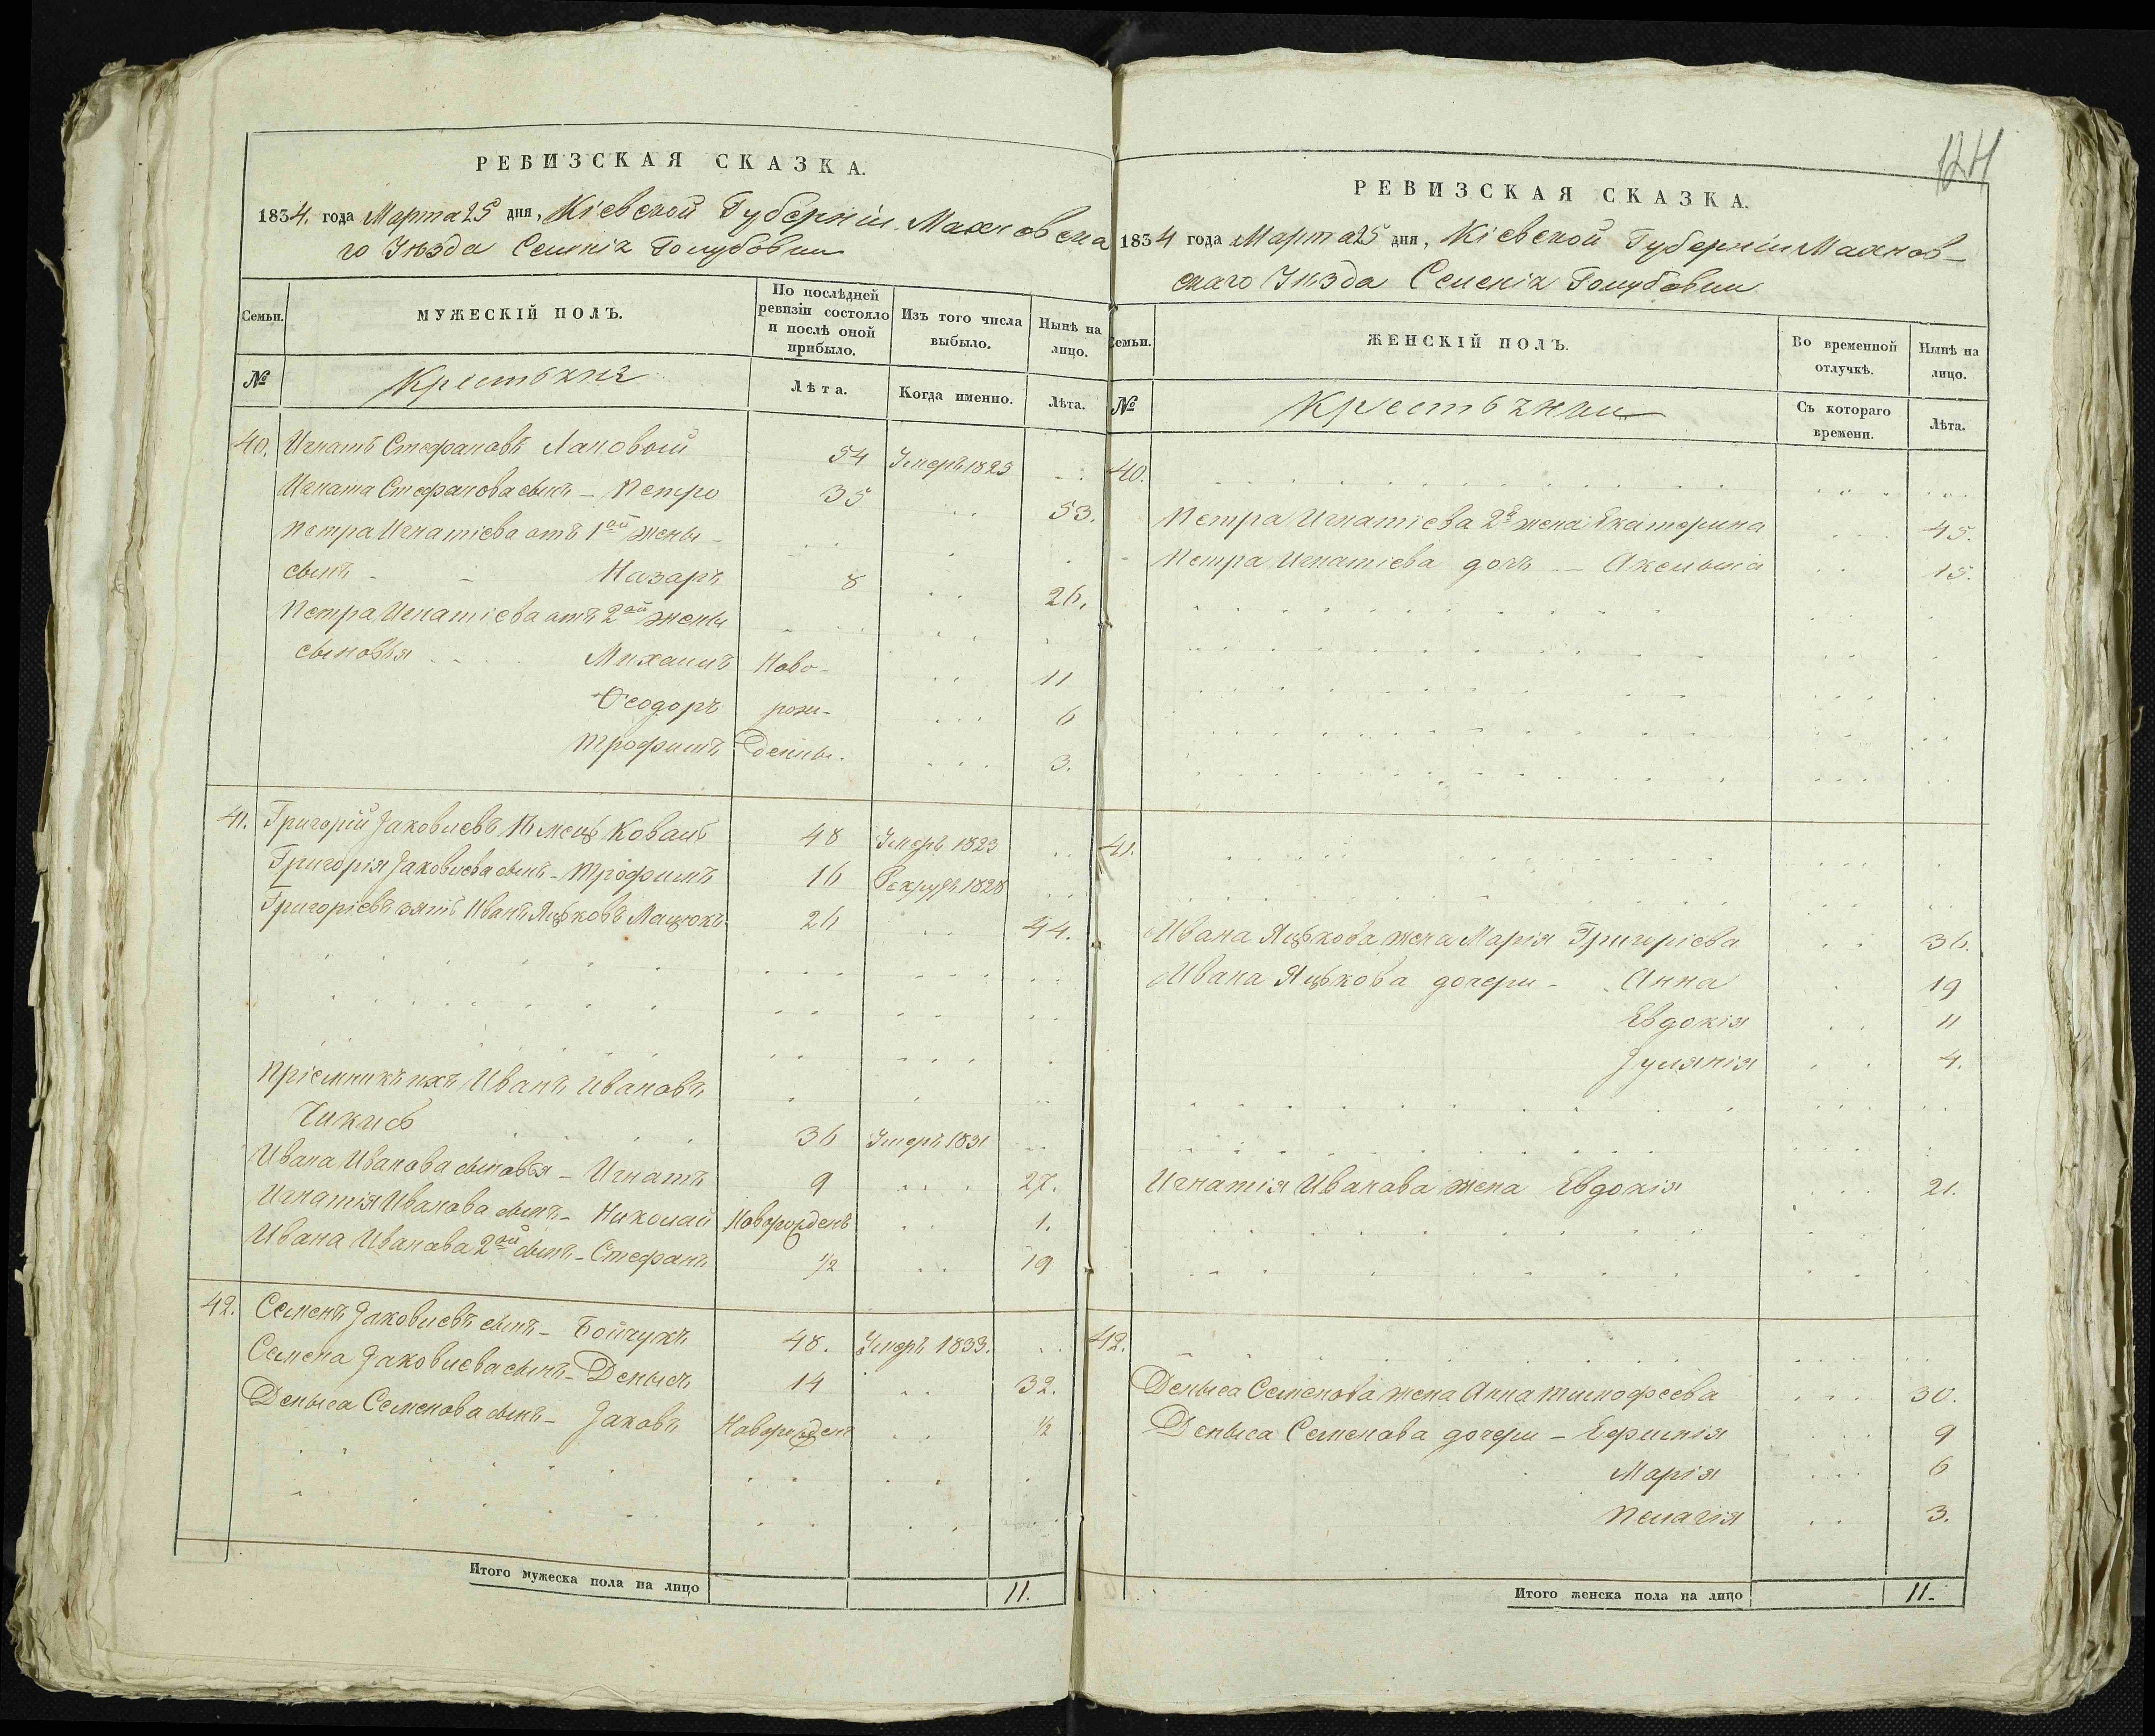 РЕВИЗСКАЯ СКАЗКА.
1834. года Марта 25 дня, Кіевской Губерніи Махновска
го Уѣзда Селенія
Семьи.
МУЖЕСКІЙ ПОЛЪ.
По послѣдней ревизіи состояло и послѣ оной прибыло.
Изъ того числа выбыло.
Нынѣ на лицо.
№
Крестьяне
Лѣта.
Когда именно.
Лѣта.
40. Игнатъ Стефановъ 54 Умеръ 1825
Игната Стефанова сынъ – Петро 35 53.
Петра Игнатіева отъ 1ой жены –
сынъ – – Назаръ 8 26.
Петра Игнатіева отъ 2ой жены
сыновья Михаилъ Ново- 11
Ѳеодоръ рож- 6
Трофимъ денны. 3.
41. Григорій Іаковлевъ Коваль 48 Умеръ 1823
Григорія Іаковлева сынъ – Трофимъ 16 Рекрутъ 1828
Григоріевъ зять Иванъ Яцьковъ Мацюкъ 26 44.
Пріемникъ ихъ Иванъ Ивановъ
36 Умеръ 1831
Ивана Иванова сыновья – Игнатъ 9 27.
Игнатія Иванова сынъ – Николай Новорожденъ 1.
Ивана Иванова 2ой сынъ – Стефанъ ½ 19
42. Семенъ Іаковлевъ сынъ – Бойчукъ 48. Умеръ 1833.
Семена Іаковлева сынъ – Денысъ 14 32.
Деныса Семенова сынъ – Іаковъ Новорожден ½
Итого мужеска пола на лицо 11.
РЕВИЗСКАЯ СКАЗКА.
1834 года Марта 25 дня, Кіевской Губерніи Махнов–
скаго Уѣзда Селенія
Семьи.
ЖЕНСКІЙ ПОЛЪ.
Во временной отлучкѣ.
Нынѣ на лицо.
№
Крестьянки
Съ котораго времени.
Лѣта.
40.
Петра Игнатіева 2я жена Екатерина 45.
Петра Игнатіева дочь – 15.
41.
Ивана Яцькова жена Марія Григоріева 36.
Ивана Яцькова дочери – Анна 19
Евдокія 11
Іулянія 4.
Игнатія Иванова жена Евдокія 21.
42.
Деныса Семенова жена Анна Тимофеева 30.
Деныса Семенова дочери – 9
Марія 6
Пелагія 3.
Итого женска пола на лицо 11.